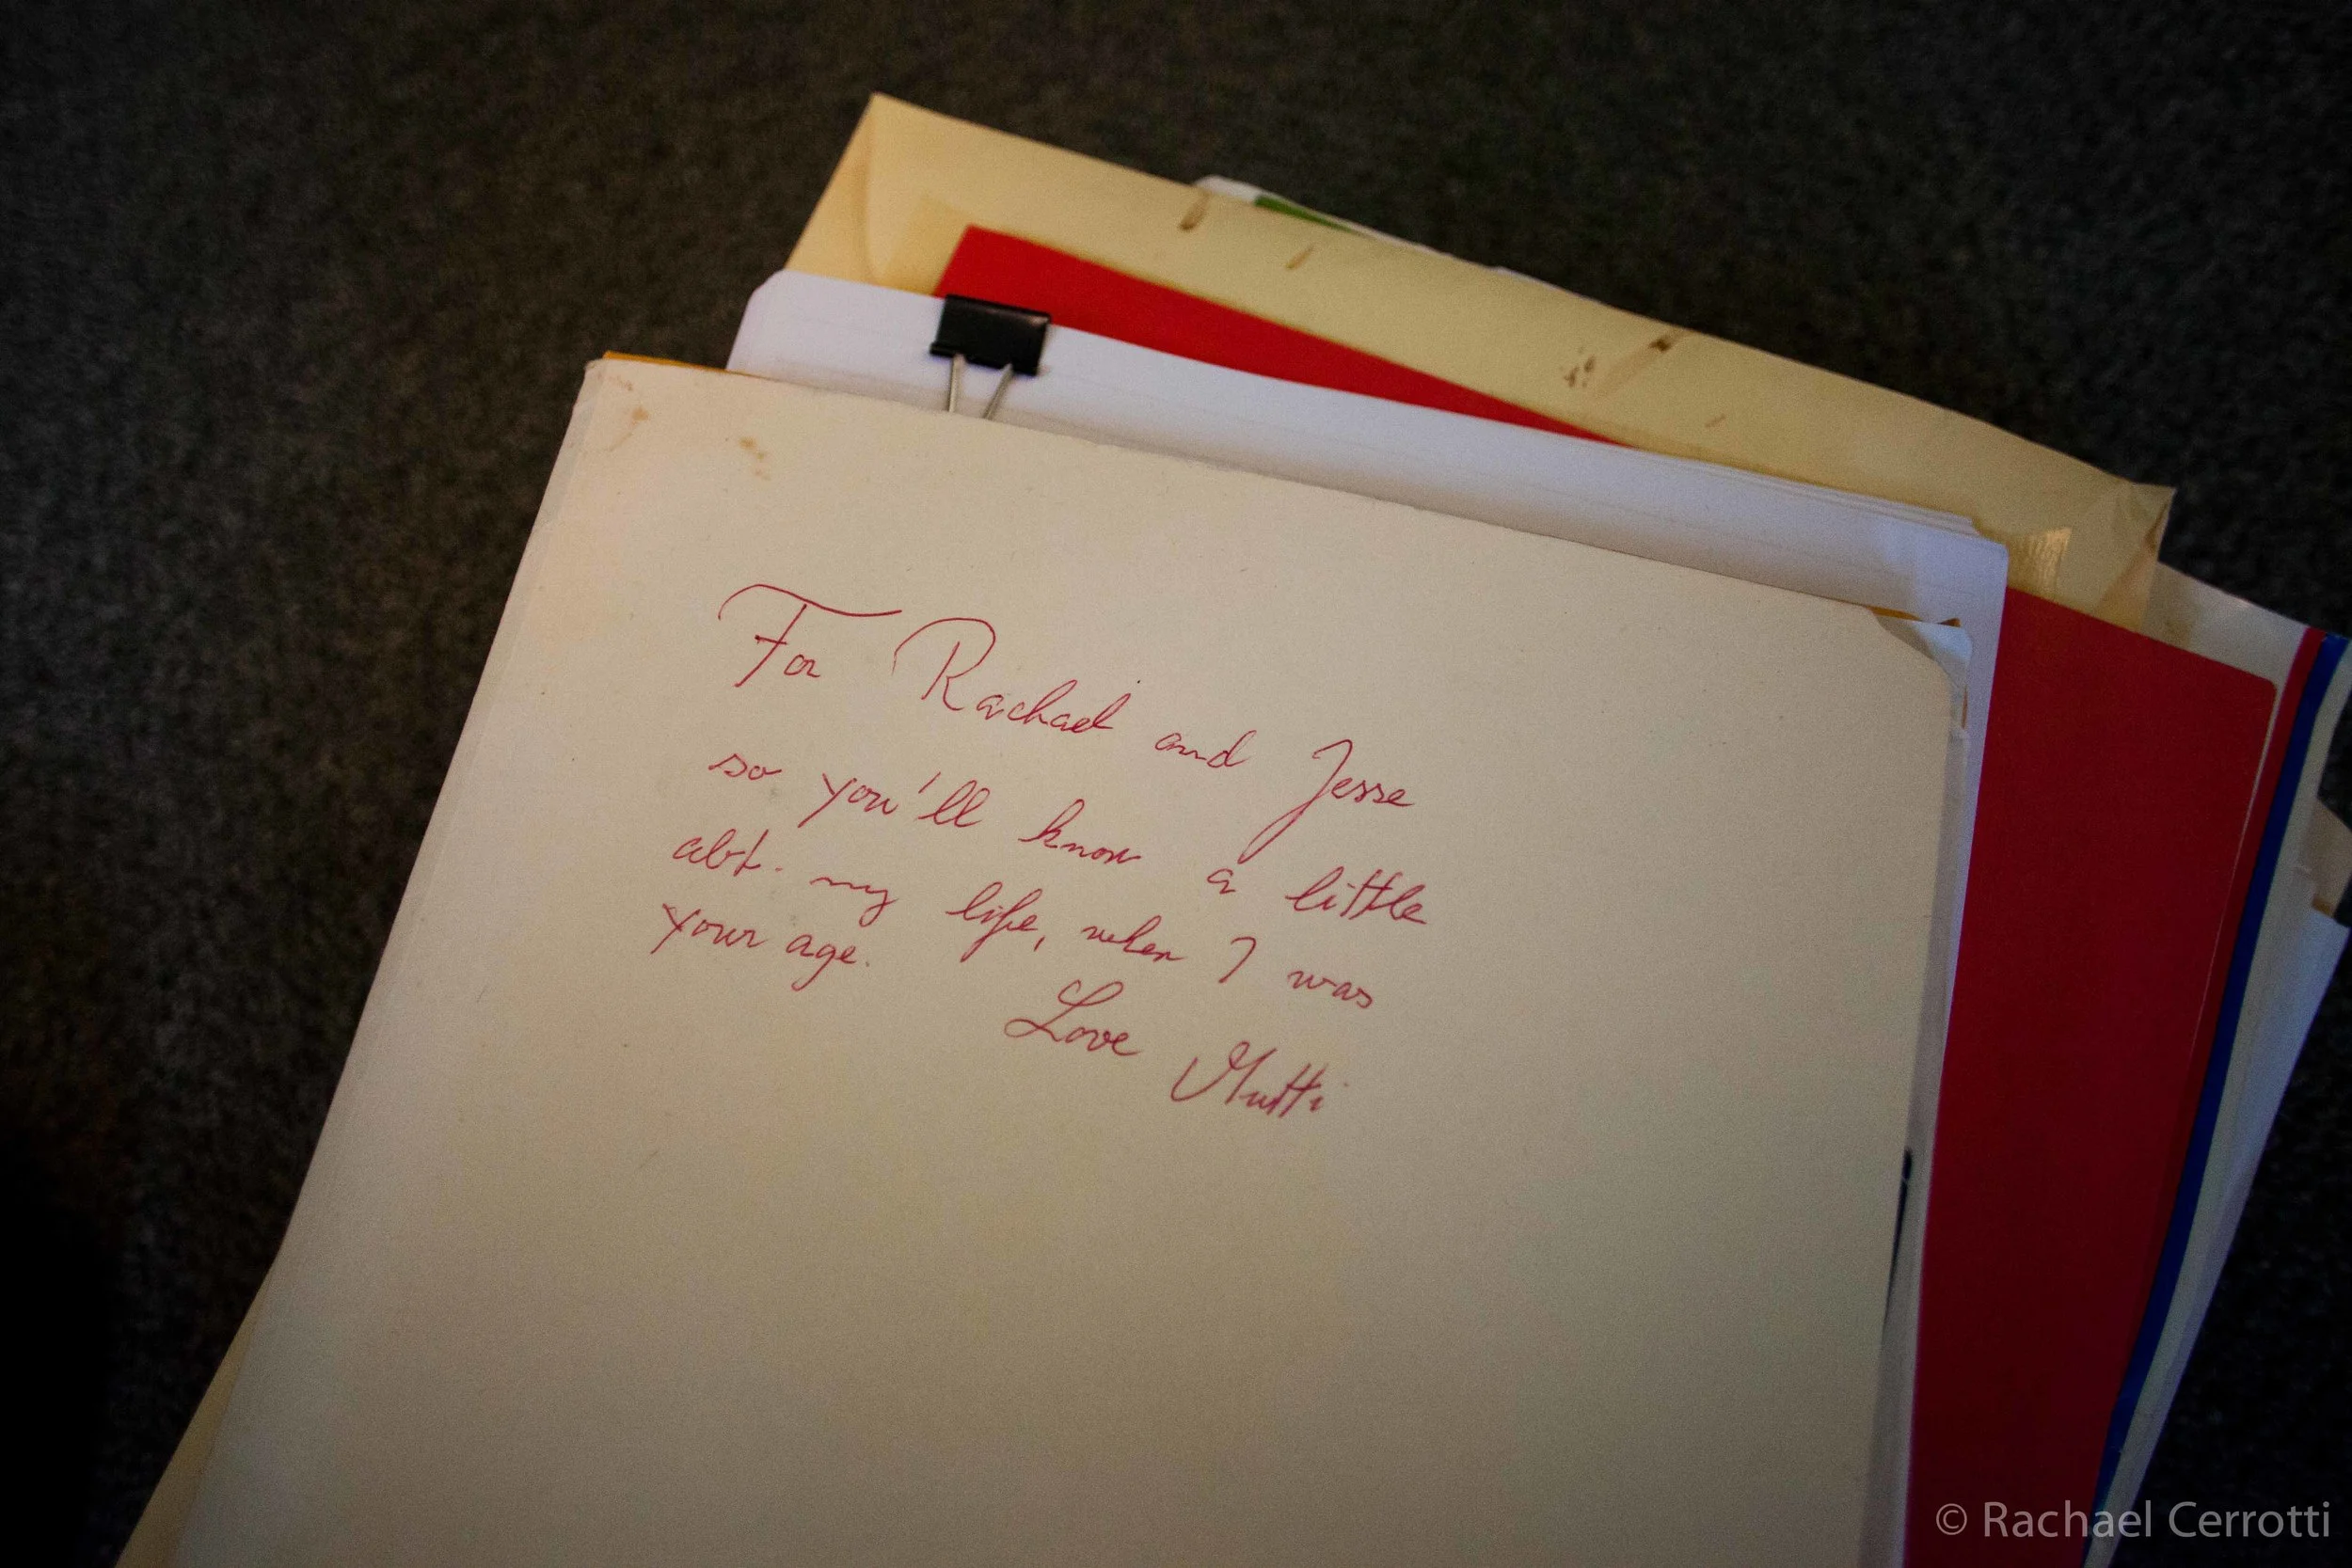 For Rachael and Jesse
so you'll know a little
abt. my life, when I was
your age.
Love Mutti
© Rachael Cerrotti